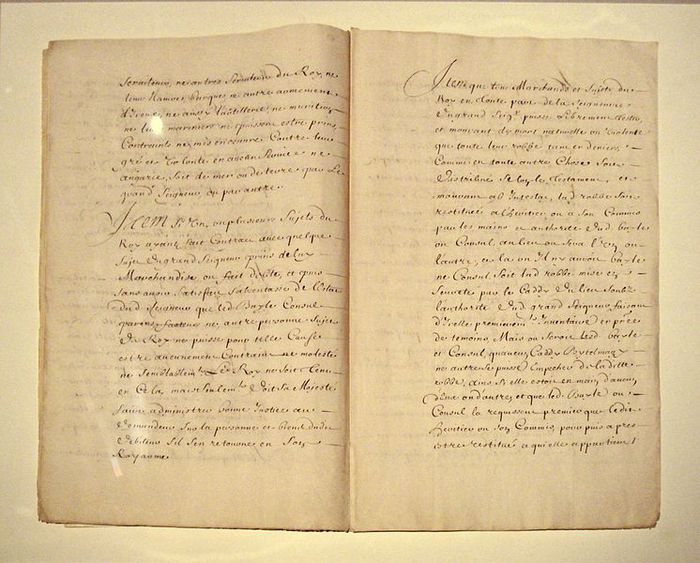 Serviteurs, ne autres Serviteurs du Roy, ne
leurs Navires, Barques, ne autre armement
d'Iceux, ne aussy l'artillerie, ne munition
ne leurs mariniers ne puissent estre prins
Contraints ne mis en oeuvre Contre leur
gré et Volonté en aucun Service ne
angarie, Soit de mer ou de terre par Le
grand Seigneur, ou par autre.
Item Si Un, ou plusieurs Sujets du
Roy ayans fait Contract avec quelque
Sujet du grand Seigneur prins de Luy
Marchandise, ou fait debte, et puis
sans avoir Satisfait S'absentasse de l'Etat
dud. Seigneur que led. Bayle Consul
parens, facteur ne, autre personne Sujet
du Roy ne puisse pour telle Cause
estre aucunement Contraint ne molesté
ne Semblablemt. Led. Roy ne soit Tenu
en Cela mais Seulemt. doit Sa Majesté
faire administrer bonne Justice au
demandeur Sur la personne et biens dudit
debiteur S'il S'en retourne en Son
Royaume
Item que tous Marchands et Sujets du
Roy en toute part de la Seigneurie
du grand Seigr. puisse Librement tester
et mourant de mort naturelle ou Violente
que toute leur robbe tant en deniers,
Comme en toute autre Chose Soit
distribuée Selon le Testament, et
mourant ab Intestat, lad. robbe Soit
restituée a l'heritier ou a Son Commis
par les mains et authorité dud. bayle
ou Consul au lieu ou Sera l'un ou
l'autre, et la ou Il n'y auroit bayle
ne Consul Soit lad. robbe mise en
Seureté par le Caddy du lieu Soubz
l'authorité dud. grand Seigneur faisant
d'Icelle premierement l'Inventaire en presence
de temoins, Mais ou seroit led. bayle
et Consul, qu'aucun Caddy
ne autre Se puisse Empecher de ladite
robbe, ains Si elle estoit en mains d'aucun
d'eux ou d'autres et que led. Bayle ou
Consul la requissent premier que ledit
heritier ou Son Commis,
estre restituée a qui elle appartient